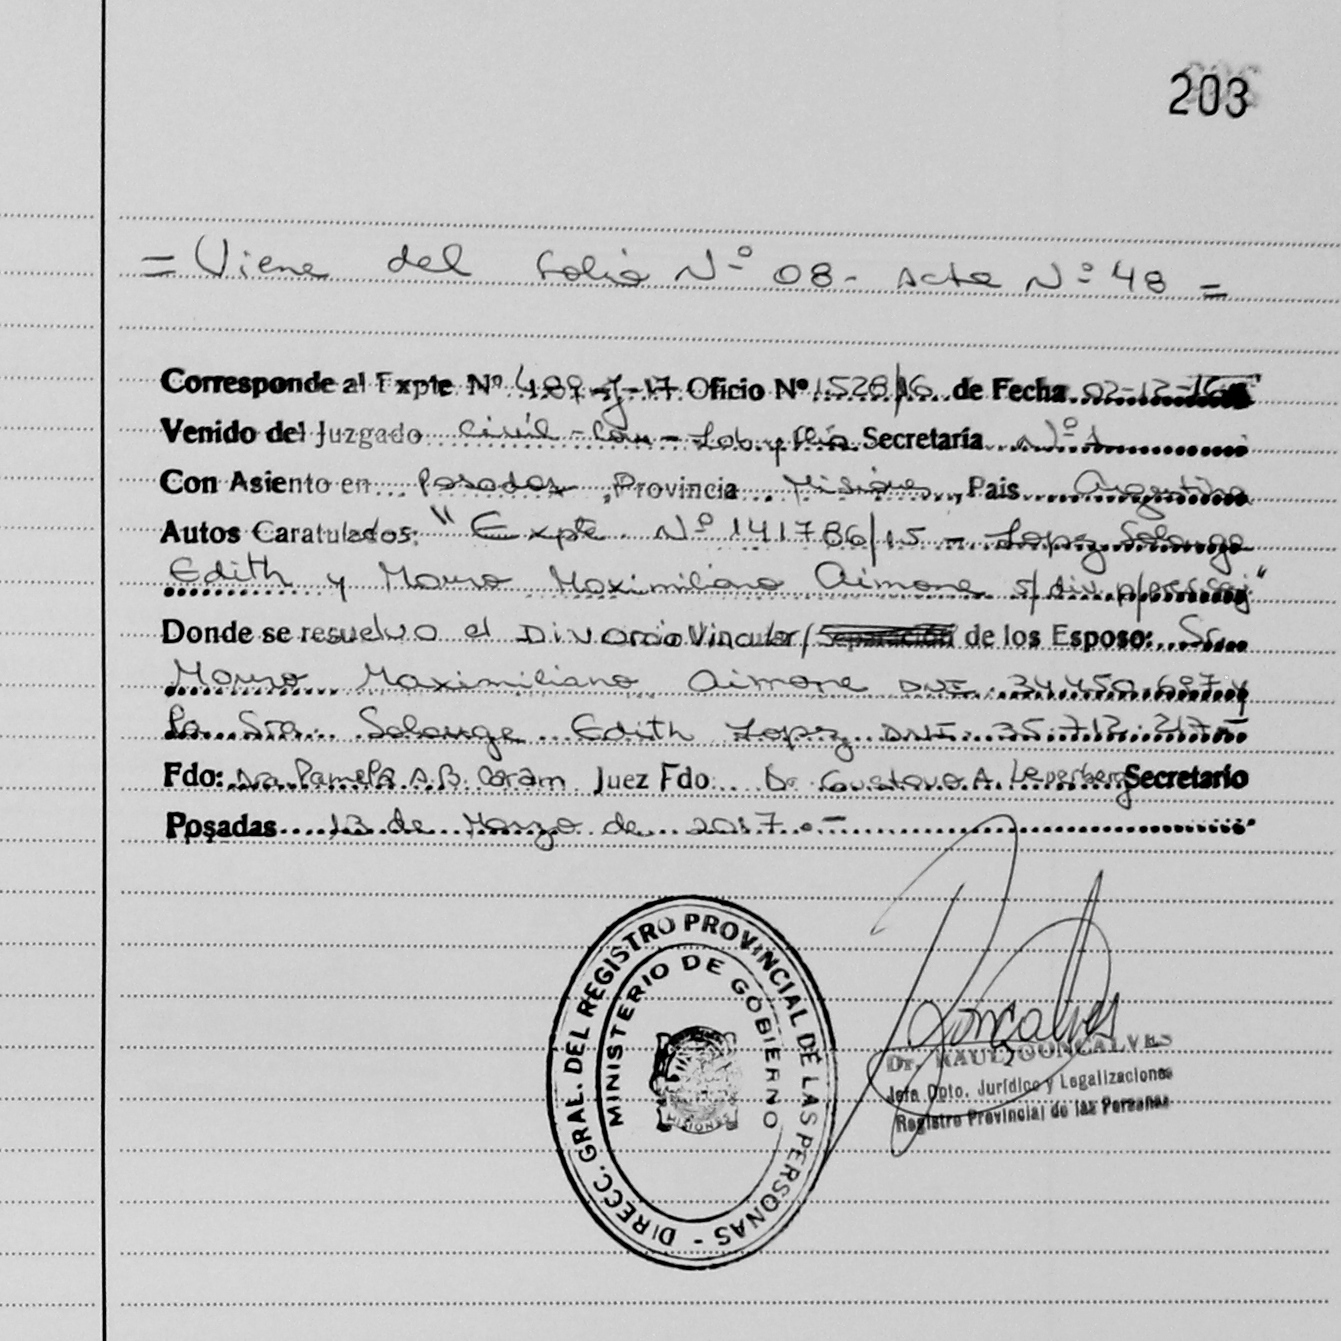 203
= Viene del folio Nº 08 - Acta Nº 48 =
Corresponde al Expte Nº 489-J-17 Oficio Nº 1528/16 de Fecha 02-12-16
Venido del Juzgado Civil - Com - Lab y Flia Secretaría Nº 1
Con Asiento en Posadas, Provincia Misiones, Pais Argentina
Autos Caratulados: "Expte Nº 141786/15 - Lopez Solange
Edith y Mauro Maximiliano Aimone s/div p/
Donde se resuelvo el Divorcio Vincular / Separación de los Esposo: Sr.
Mauro Maximiliano Aimone DNI 34.450.687 y
la Sra. Solange Edith Lopez DNI 35.712.217 -
Fdo: Dra Pamela A.B. Coram Juez Fdo Dr Gustavo A. Secretario
Posadas 13 de Marzo de 2017.-
DIRECC. GRAL. DEL REGISTRO PROVINCIAL DE LAS PERSONAS -
MINISTERIO DE GOBIERNO
MISIONES
Goncalves
Dr. RAUL GONCALVES
Jefe Dpto. Jurídico y Legalizaciones
Registro Provincial de las Personas